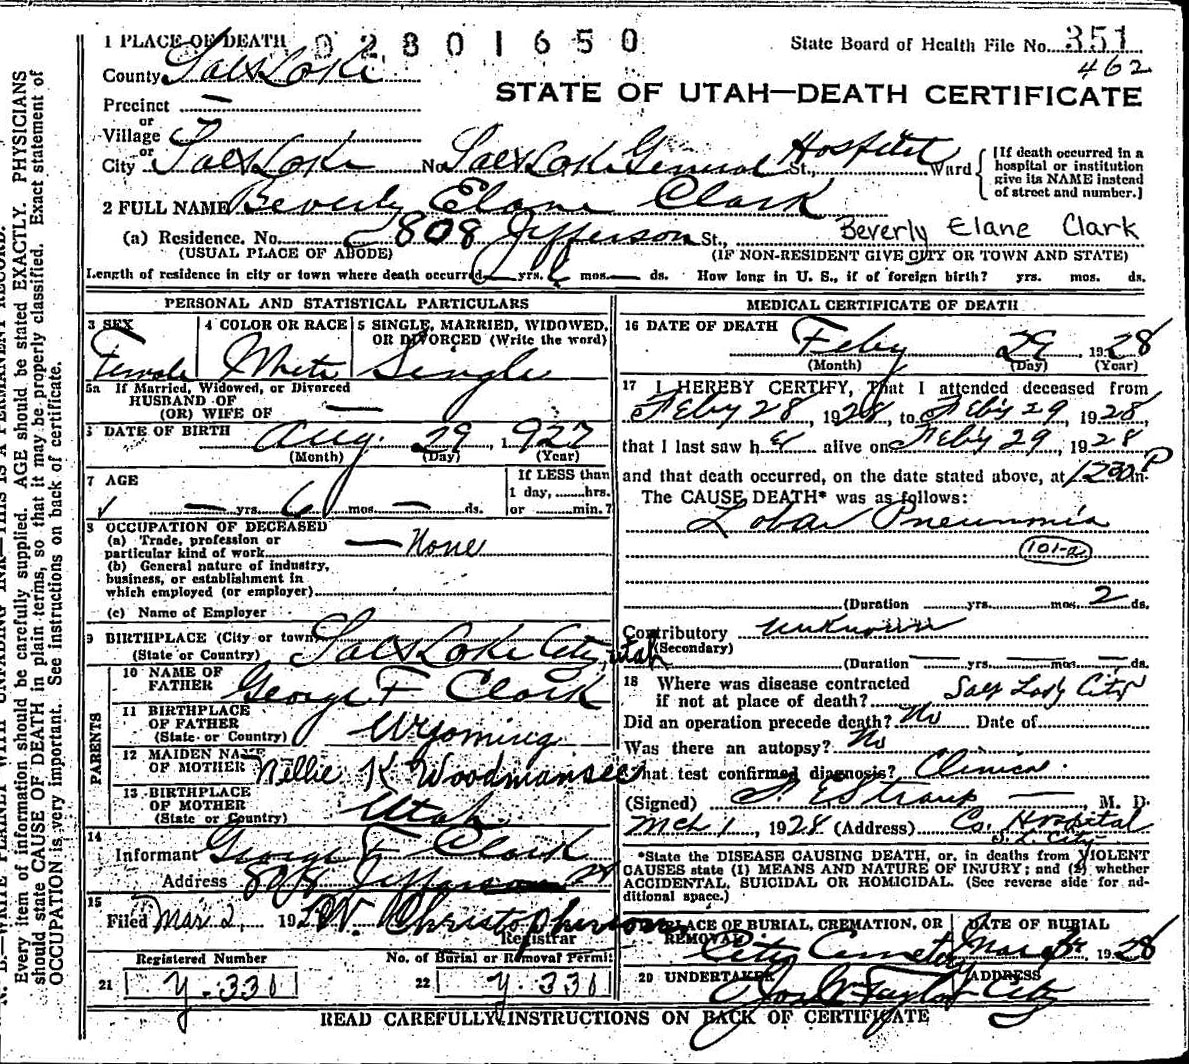 1 PLACE OF DEATH 02801650
State Board of Health File No. 351
462
County Salt Lake
STATE OF UTAH—DEATH CERTIFICATE
Precinct —
or
Village
or
City Salt Lake No. Salt Lake General Hospital St., Ward
[If death occurred in a
hospital or institution
give its NAME instead
of street and number.]
2 FULL NAME Beverly Elane Clark
(a) Residence. No. 808 Jefferson St., Beverly Elane Clark
(USUAL PLACE OF ABODE) (IF NON-RESIDENT GIVE CITY OR TOWN AND STATE)
Length of residence in city or town where death occurred — yrs. 6 mos. — ds. How long in U. S., if of foreign birth? yrs. mos. ds.
PERSONAL AND STATISTICAL PARTICULARS
3 SEX 4 COLOR OR RACE 5 SINGLE, MARRIED, WIDOWED,
OR DIVORCED (Write the word)
Female White Single
5a If Married, Widowed, or Divorced
HUSBAND OF
(OR) WIFE OF —
6 DATE OF BIRTH Aug. 29, 1927
(Month) (Day) (Year)
7 AGE If LESS than
1 day, hrs.
— yrs. 6 mos. — ds. or min.?
8 OCCUPATION OF DECEASED
(a) Trade, profession or
particular kind of work — None
(b) General nature of industry,
business, or establishment in
which employed (or employer)
(c) Name of Employer
9 BIRTHPLACE (City or town) Salt Lake City, Utah
(State or Country)
PARENTS
10 NAME OF
FATHER George F Clark
11 BIRTHPLACE
OF FATHER Wyoming
(State or Country)
12 MAIDEN NAME
OF MOTHER Nellie K Woodmansee
13 BIRTHPLACE
OF MOTHER Utah
(State or Country)
14
Informant George F Clark
Address 808 Jefferson
15
Filed Mar 2, 1928 W. Christopherson
Registrar
Registered Number No. of Burial or Removal Permit
21 Y-331 22 Y-331
MEDICAL CERTIFICATE OF DEATH
16 DATE OF DEATH
Feby 29, 1928
(Month) (Day) (Year)
17 I HEREBY CERTIFY, That I attended deceased from
Feby 28, 1928, to Feby 29, 1928
that I last saw her alive on Feby 29, 1928
and that death occurred, on the date stated above, at 1230 P m.
The CAUSE DEATH* was as follows:
Lobar Pneumonia
101-a
(Duration yrs. mos. 2 ds.
Contributory unknown
(Secondary)
(Duration — yrs. — mos. — ds.
18 Where was disease contracted
if not at place of death? Salt Lake City
Did an operation precede death? No Date of
Was there an autopsy? No
What test confirmed diagnosis? Clinical
(Signed) M. D.
Mch 1, 1928 (Address) Co. Hospital
S. L. City
*State the DISEASE CAUSING DEATH, or, in deaths from VIOLENT
CAUSES state (1) MEANS AND NATURE OF INJURY; and (2) whether
ACCIDENTAL, SUICIDAL OR HOMICIDAL. (See reverse side for ad-
ditional space.)
PLACE OF BURIAL, CREMATION, OR DATE OF BURIAL
REMOVAL City Cemetery Mar 1928
20 UNDERTAKER ADDRESS
Jos Wm Taylor City
READ CAREFULLY INSTRUCTIONS ON BACK OF CERTIFICATE
N. B.—WRITE PLAINLY WITH UNFADING INK—THIS IS A PERMANENT RECORD.
Every item of information should be carefully supplied. AGE should be stated EXACTLY. PHYSICIANS
should state CAUSE OF DEATH in plain terms, so that it may be properly classified. Exact statement of
OCCUPATION is very important. See instructions on back of certificate.